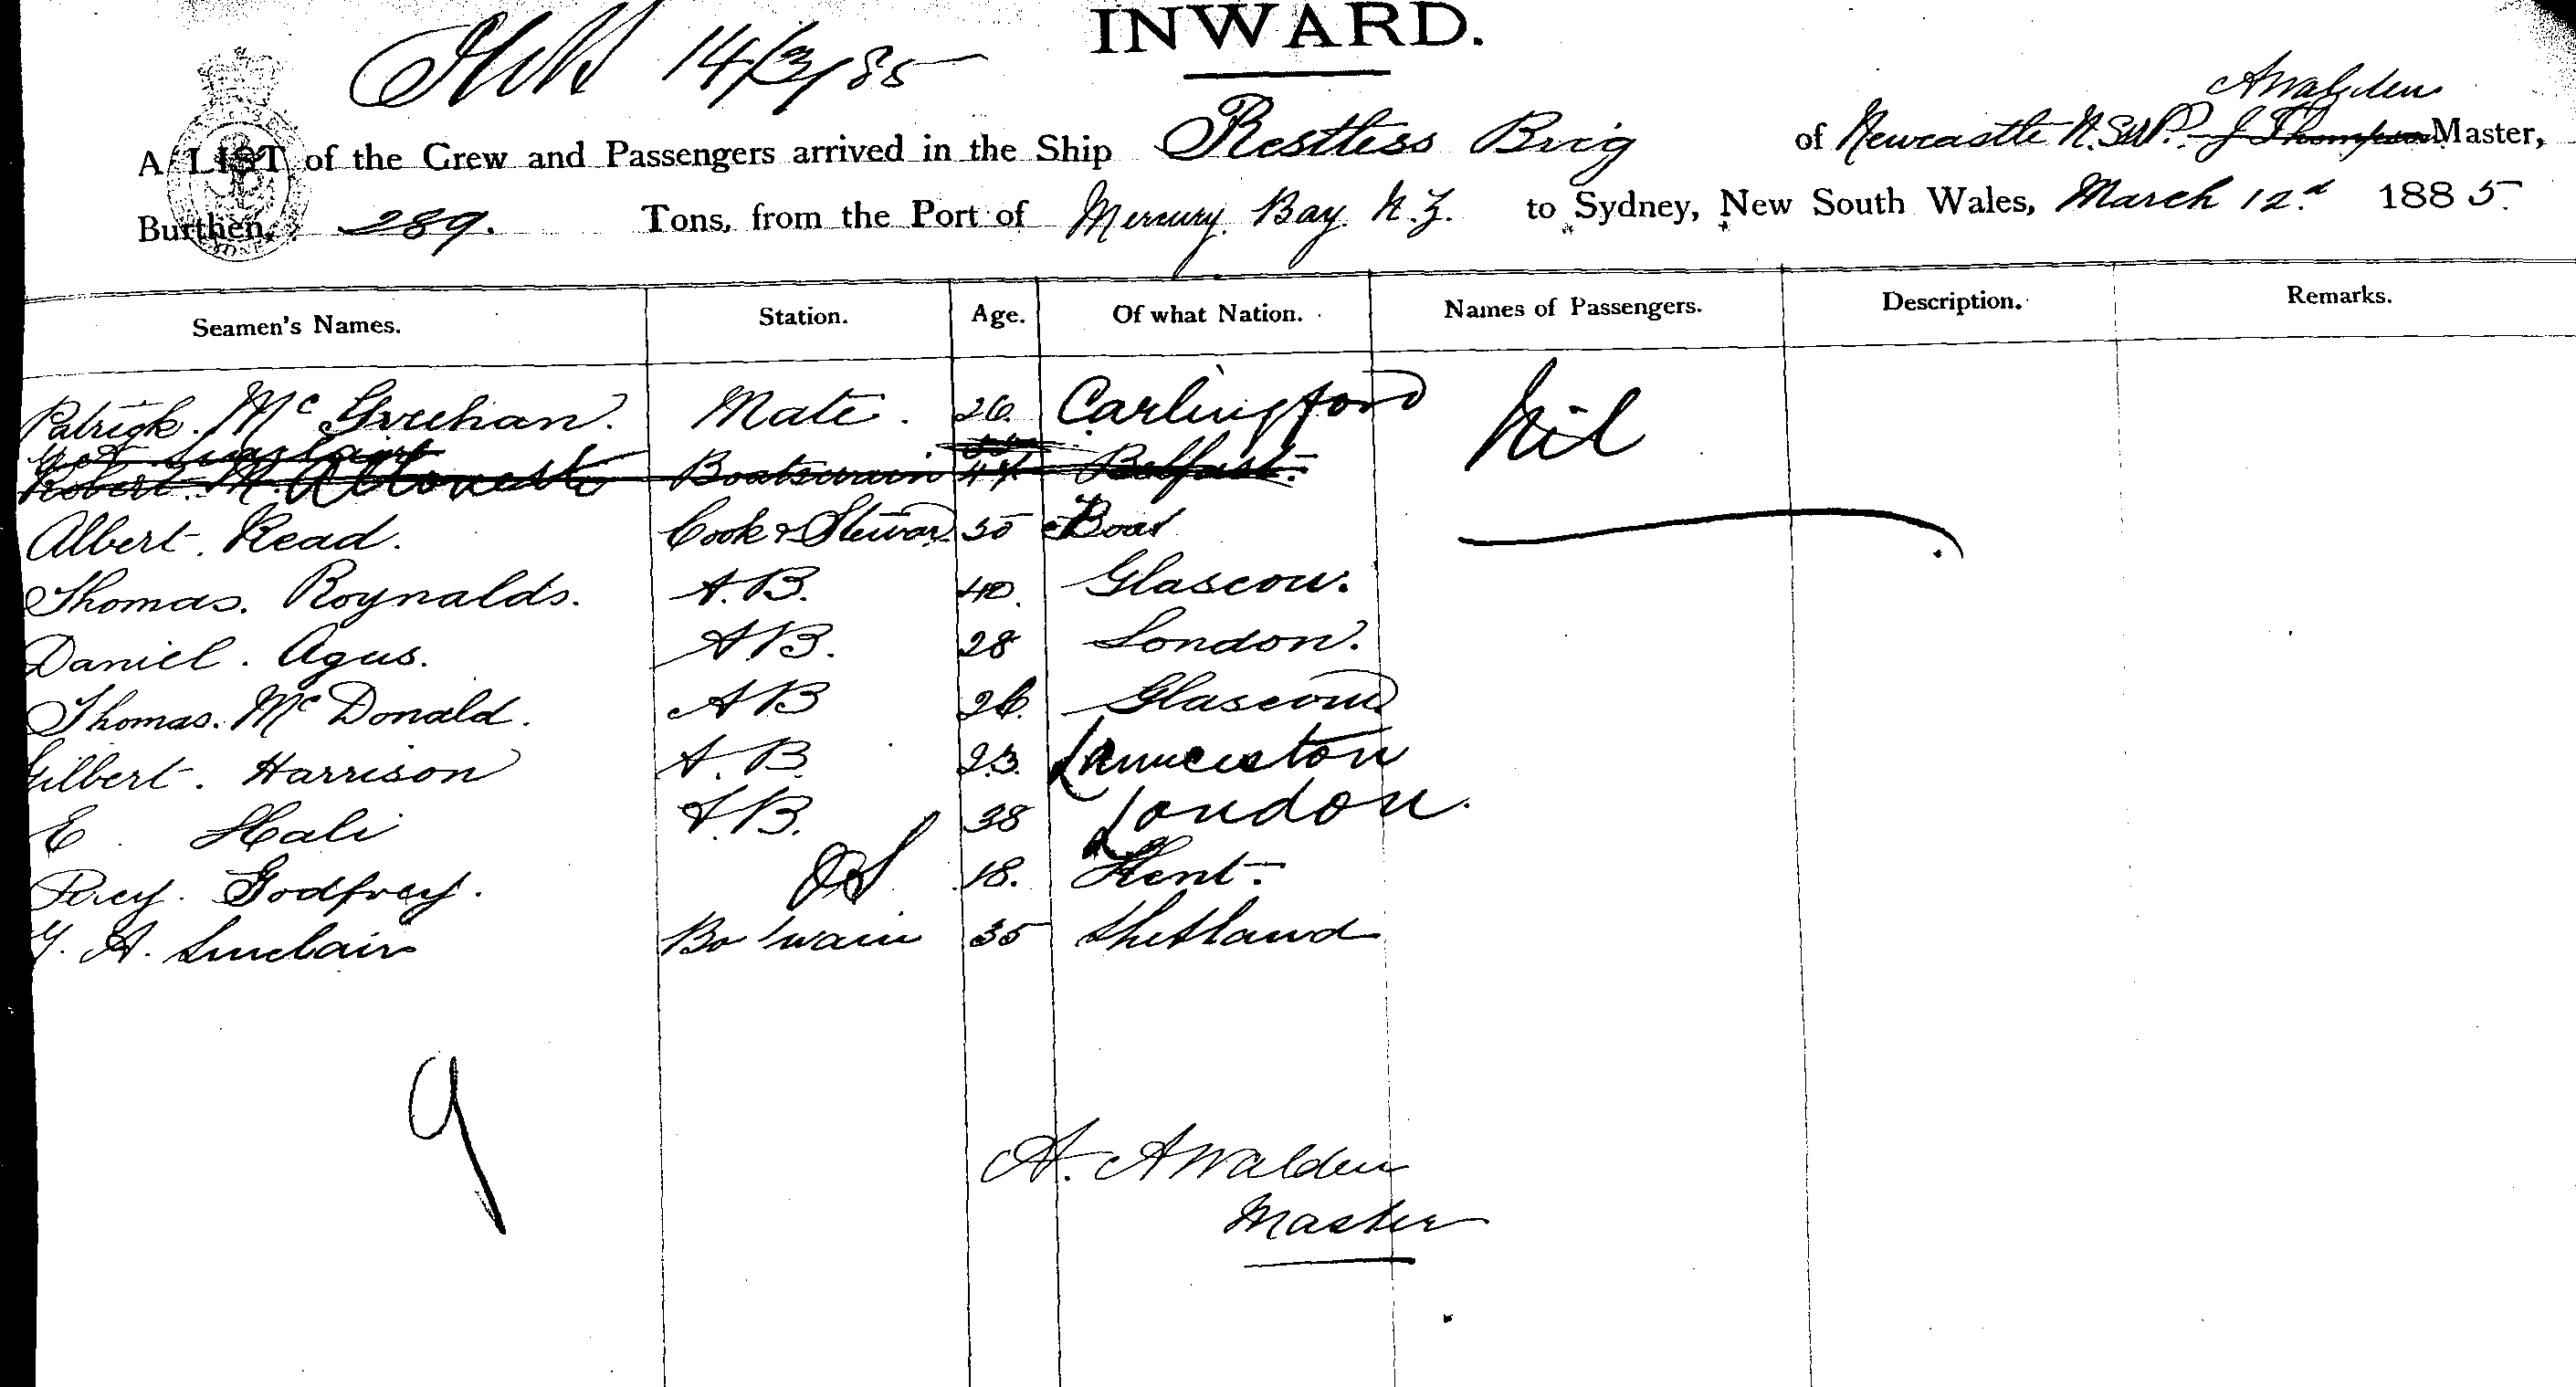 INWARD.
14/3/85
A Walden
A LIST of the Crew and Passengers arrived in the Ship Restless Brig of Newcastle N.S.W. J Thompson Master,
Burthen, 289. Tons, from the Port of Mercury Bay N.Z. to Sydney, New South Wales, March 12th 1885.
Seamen's Names. Station. Age. Of what Nation. Names of Passengers. Description. Remarks.
Patrick. Mc Greehan. Mate. 26. Carlingford Nil
Sinclair
Robert. M. Boatswain 44 Belfast.
Albert. Read. Cook & Steward 50
Thomas. Roynalds. A.B. 40. Glascow.
Daniel. Agus. A.B. 28 London.
Thomas. Mc Donald. A B 26. Glascow
Gilbert. Harrison A.B. 23. Launceston
E Hali A.B. 38 London.
Percy. Godfrey. OS 18. Kent.
Y. A. Sinclair Bo'swain 35 Shetland
9
A. A Walden
Master